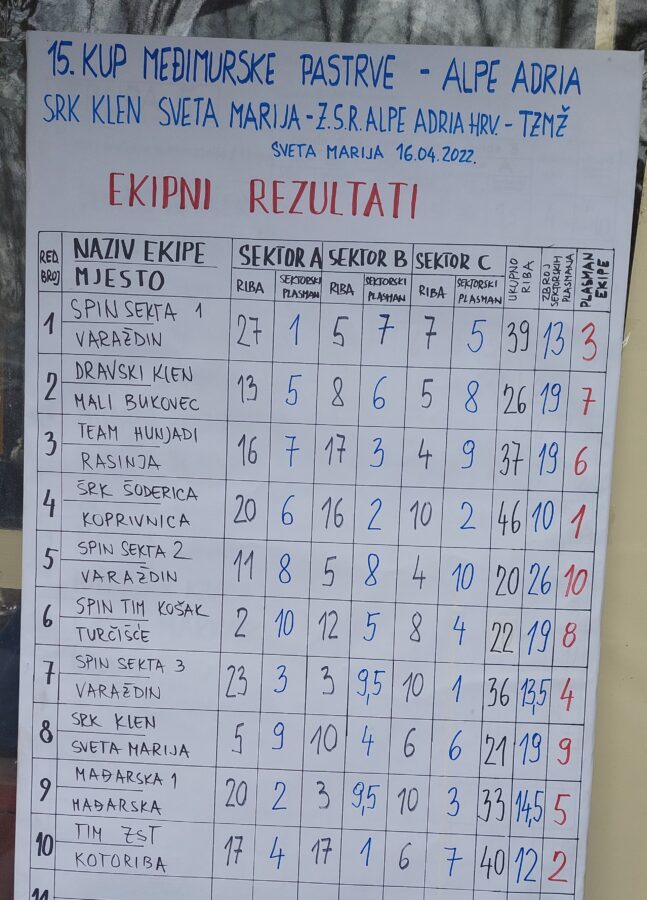 15. KUP MEĐIMURSKE PASTRVE - ALPE ADRIA
SRK KLEN SVETA MARIJA - Z.S.R. ALPE ADRIA HRV. - TZMŽ
SVETA MARIJA 16.04.2022.
EKIPNI REZULTATI
RED. BROJ NAZIV EKIPE MJESTO SEKTOR A SEKTOR B SEKTOR C UKUPNO RIBA ZBROJ SEKTORSKIH PLASMANA PLASMAN EKIPE
RIBA SEKTORSKI PLASMAN RIBA SEKTORSKI PLASMAN RIBA SEKTORSKI PLASMAN
1 SPIN SEKTA 1
VARAŽDIN 27 1 5 7 7 5 39 13 3
2 DRAVSKI KLEN
MALI BUKOVEC 13 5 8 6 5 8 26 19 7
3 TEAM HUNJADI
RASINJA 16 7 17 3 4 9 37 19 6
4 ŠRK ŠODERICA
KOPRIVNICA 20 6 16 2 10 2 46 10 1
5 SPIN SEKTA 2
VARAŽDIN 11 8 5 8 4 10 20 26 10
6 SPIN TIM KOŠAK
TURČIŠĆE 2 10 12 5 8 4 22 19 8
7 SPIN SEKTA 3
VARAŽDIN 23 3 3 9,5 10 1 36 13,5 4
8 SRK KLEN
SVETA MARIJA 5 9 10 4 6 6 21 19 9
9 MAĐARSKA 1
MAĐARSKA 20 2 3 9,5 10 3 33 14,5 5
10 TIM ZST
KOTORIBA 17 4 17 1 6 7 40 12 2